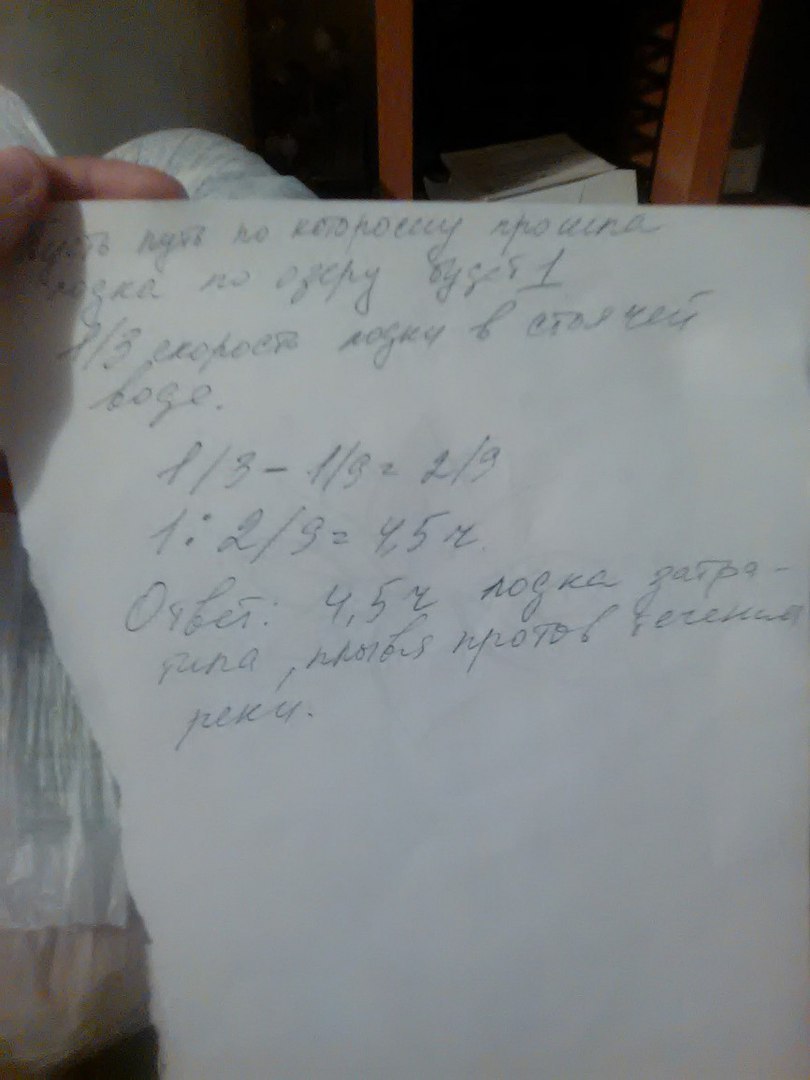 Пусть путь по которому прошла
лодка по озеру будет 1
1/3 скорость лодки в стоячей
воде.
1/3 - 1/9 = 2/9
1 : 2/9 = 4,5 ч.
Ответ: 4,5 ч лодка затра-
тила, плывя против течения
реки.